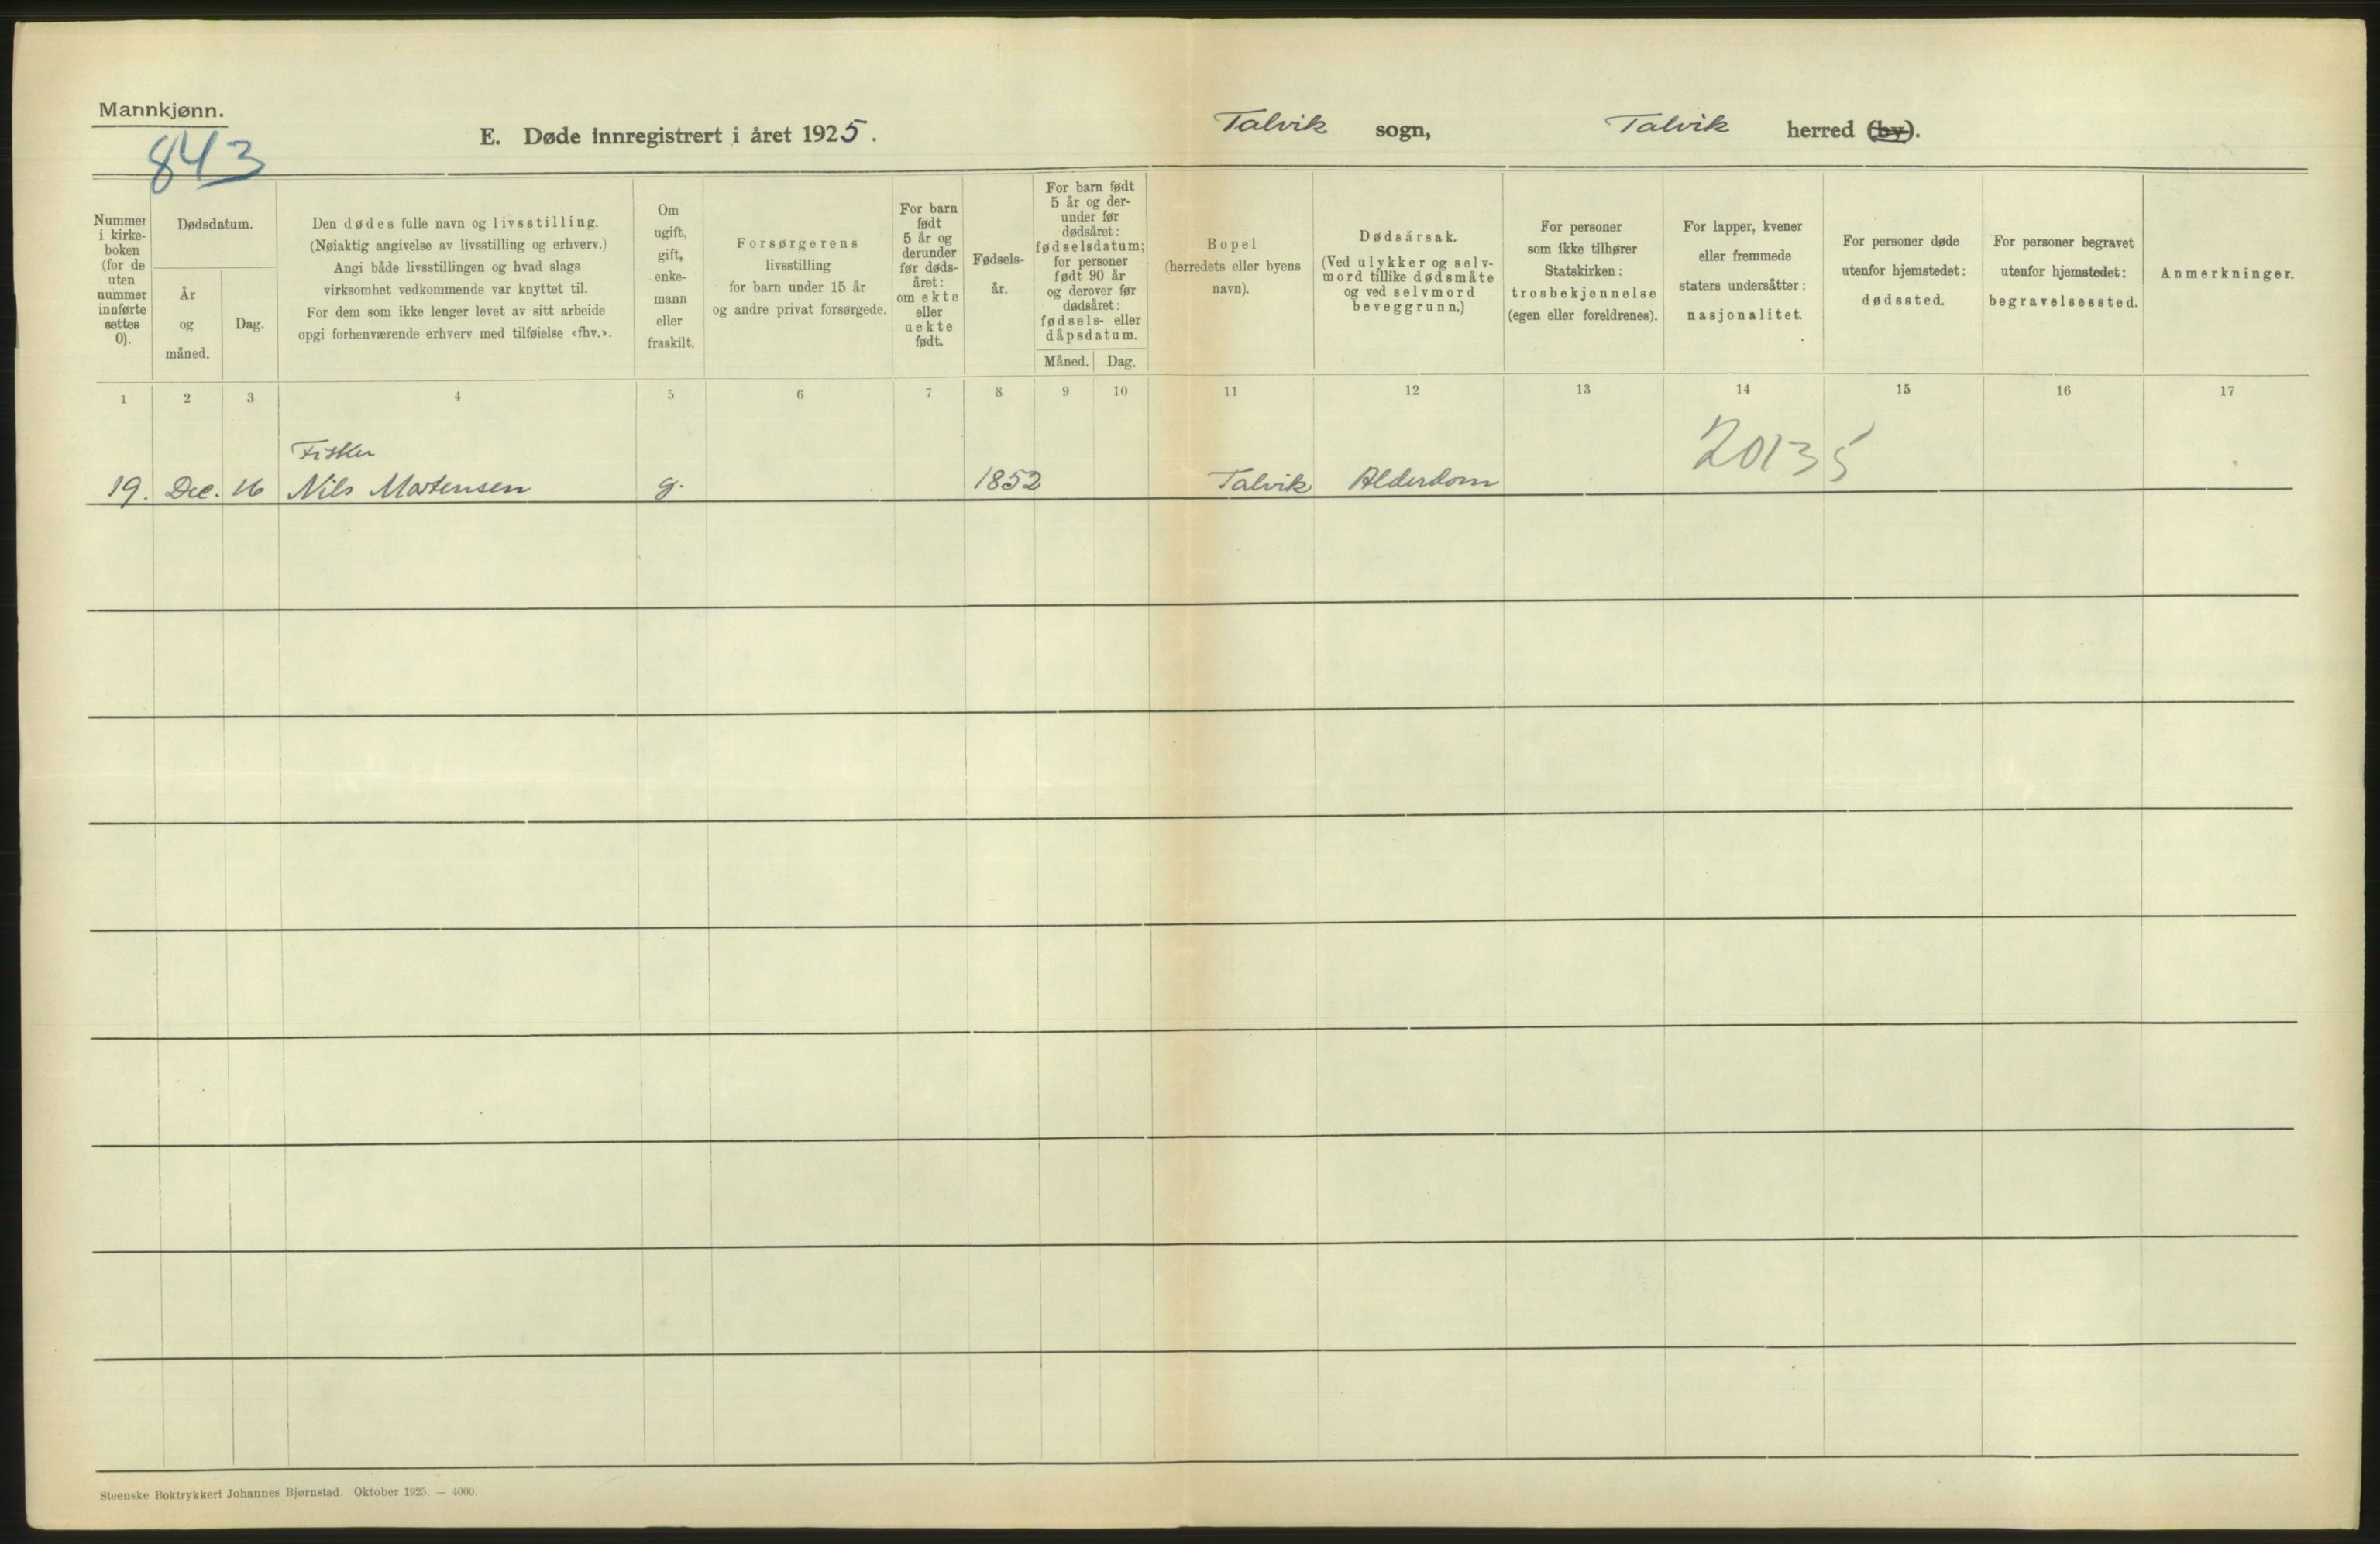 Mannkjønn.
843
E. Døde innregistrert i året 1925.
Talvik sogn, Talvik herred (by).
Nummer
i kirke-
boken
(for de
uten
nummer
innførte
settes
0).
Dødsdatum.
År
og
måned.
Dag.
Den dødes fulle navn og livsstilling.
(Nøiaktig angivelse av livsstilling og erhverv.)
Angi både livsstillingen og hvad slags
virksomhet vedkommende var knyttet til.
For dem som ikke lenger levet av sitt arbeide
opgi forhenværende erhverv med tilføielse «fhv.».
Om
ugift,
gift,
enke-
mann
eller
fraskilt.
Forsørgerens
livsstilling
for barn under 15 år
og andre privat forsørgede.
For barn
født
5 år og
derunder
før døds-
året:
om ekte
eller
uekte
født.
Fødsels-
år.
For barn født
5 år og der-
under før
dødsåret:
fødselsdatum;
for personer
født 90 år
og derover før
dødsåret:
fødsels- eller
dåpsdatum.
Måned. Dag.
Bopel
(herredets eller byens
navn).
Dødsårsak.
(Ved ulykker og selv-
mord tillike dødsmåte
og ved selvmord
beveggrunn.)
For personer
som ikke tilhører
Statskirken:
trosbekjennelse
(egen eller foreldrenes).
For lapper, kvener
eller fremmede
staters undersåtter:
nasjonalitet.
For personer døde
utenfor hjemstedet:
dødssted.
For personer begravet
utenfor hjemstedet:
begravelsessted.
Anmerkninger.
1 2 3 4 5 6 7 8 9 10 11 12 13 14 15 16 17
20135
Fisker
19. Dec. 16 Nils Mortensen g. 1852 Talvik Alderdom
Steenske Boktrykkeri Johannes Bjørnstad. Oktober 1925. — 4000.